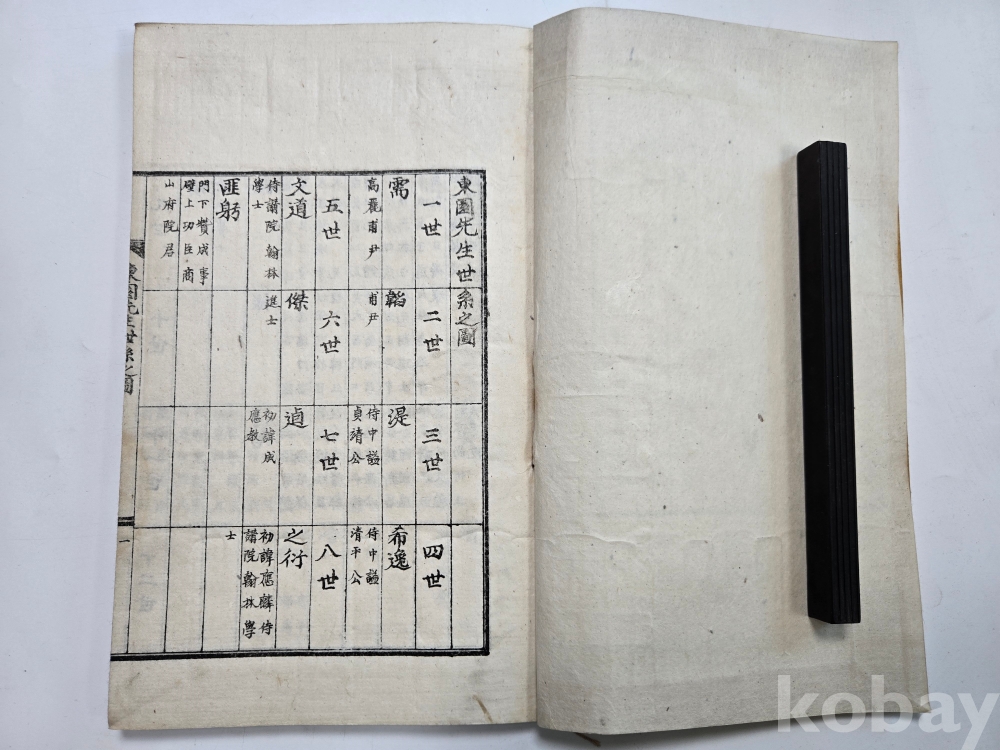 東園先生世系之圖
一世
二世
三世
四世
需
高麗甫尹
韜
甫尹
湜
侍中諡
貞靖公
希逸
侍中諡
清平公
五世
六世
七世
八世
文道
侍講院翰林
學士
傑
進士
初諱成
應教
之衍
初諱應麟侍
講院翰林學
士
匪躬
門下贊成事
壁上功臣商
山府院君
東園先生世系之圖
一
kobay